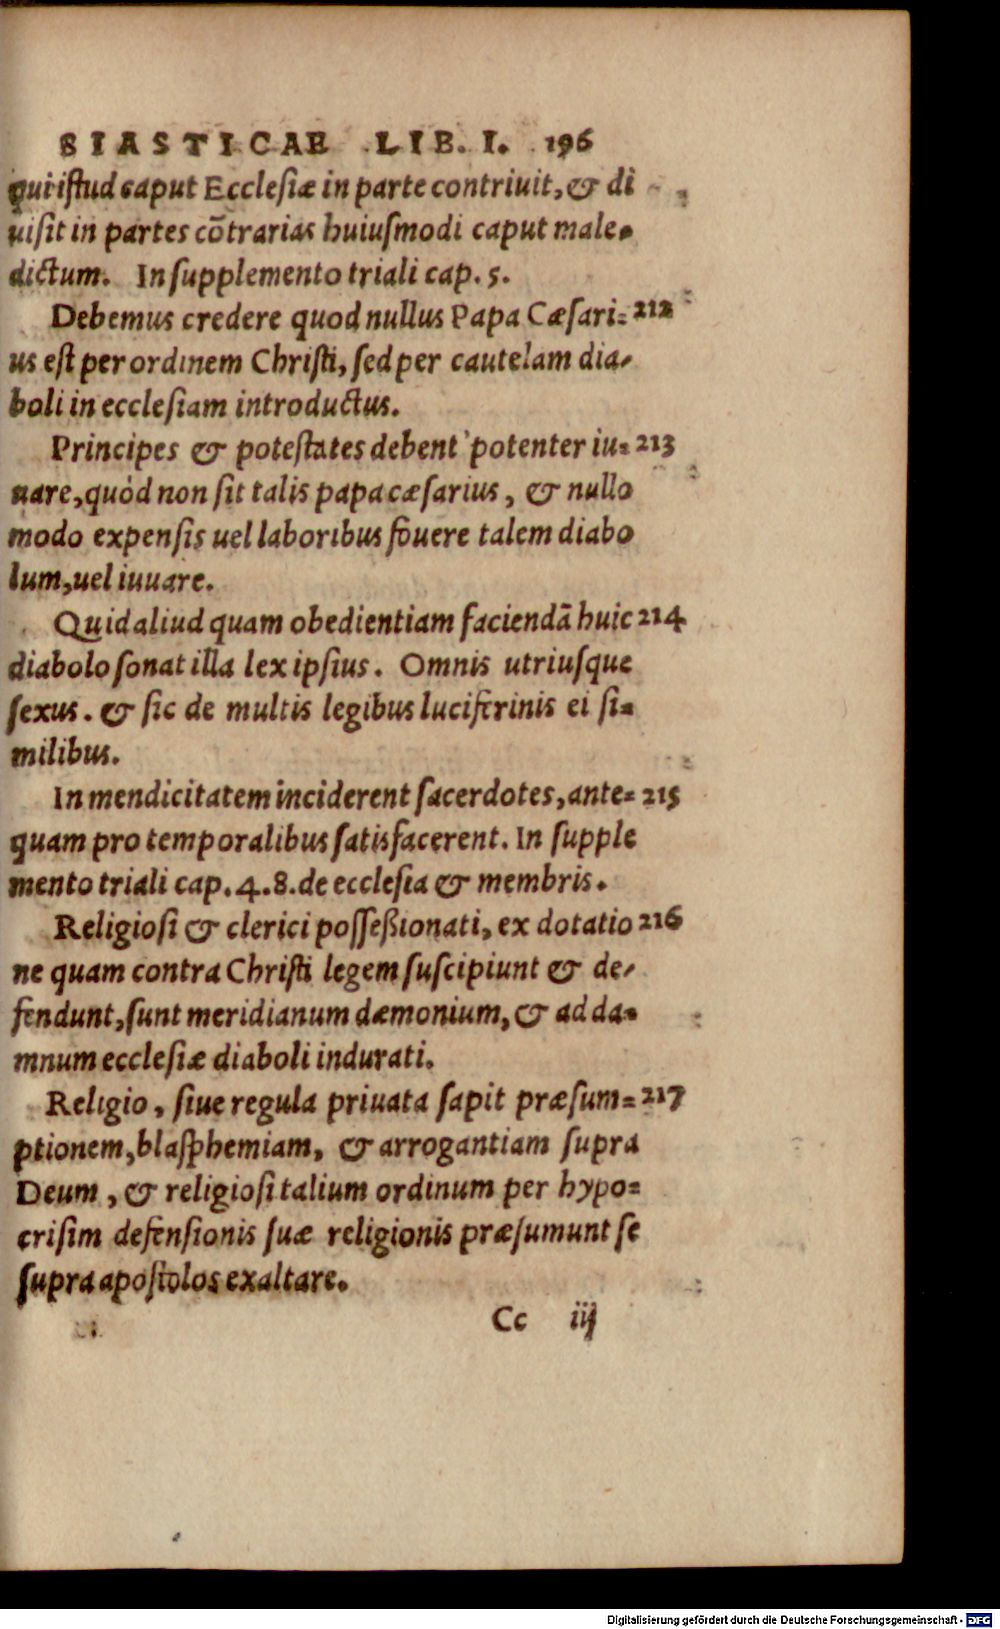 SIASTICAE LIB. I. 196
qui istud caput Ecclesiæ in parte contriuit, & di
uisit in partes cõtrarias huiusmodi caput male-
dictum. In supplemento triali cap. 5.
Debemus credere quod nullus Papa Cæsari- 212
us est per ordinem Christi, sed per cautelam dia-
boli in ecclesiam introductus.
Principes & potestates debent potenter iu- 213
uare, quòd non sit talis papa cæsarius, & nullo
modo expensis uel laboribus fouere talem diabo
lum, uel iuuare.
Quid aliud quam obedientiam faciendã huic 214
diabolo sonat illa lex ipsius. Omnis utriusque
sexus. & sic de multis legibus luciferinis ei si-
milibus.
In mendicitatem inciderent sacerdotes, ante- 215
quam pro temporalibus satisfacerent. In supple
mento triali cap. 4. 8. de ecclesia & membris.
Religiosi & clerici possessionati, ex dotatio 216
ne quam contra Christi legem suscipiunt & de-
fendunt, sunt meridianum dæmonium, & ad da-
mnum ecclesiæ diaboli indurati.
Religio, siue regula priuata sapit præsum- 217
ptionem, blasphemiam, & arrogantiam supra
Deum, & religiosi talium ordinum per hypo-
crisim defensionis suæ religionis præsumunt se
supra apostolos exaltare.
Cc iij
Digitalisierung gefördert durch die Deutsche Forschungsgemeinschaft - DFG